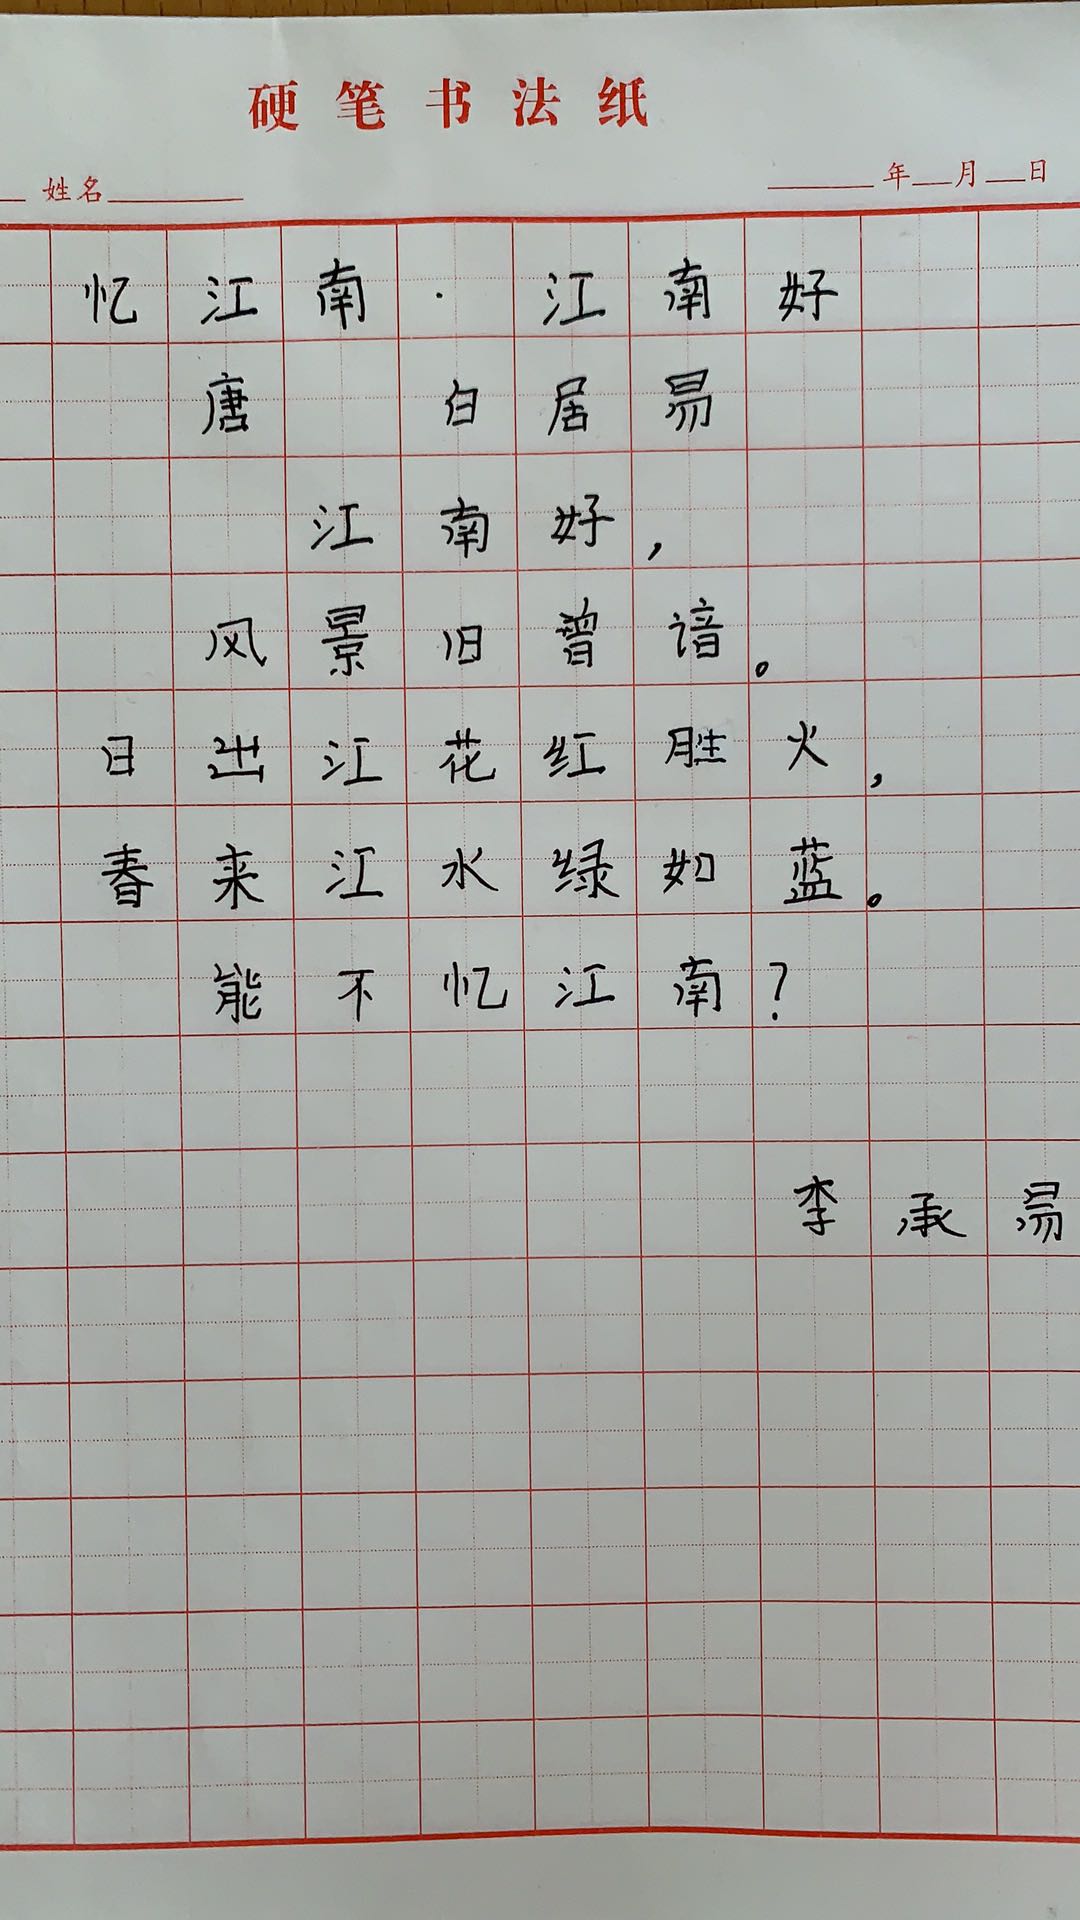 硬笔书法纸
姓名 年 月 日
忆江南·江南好
唐 白居易
江南好，
风景旧曾谙。
日出江花红胜火，
春来江水绿如蓝。
能不忆江南？
李承易